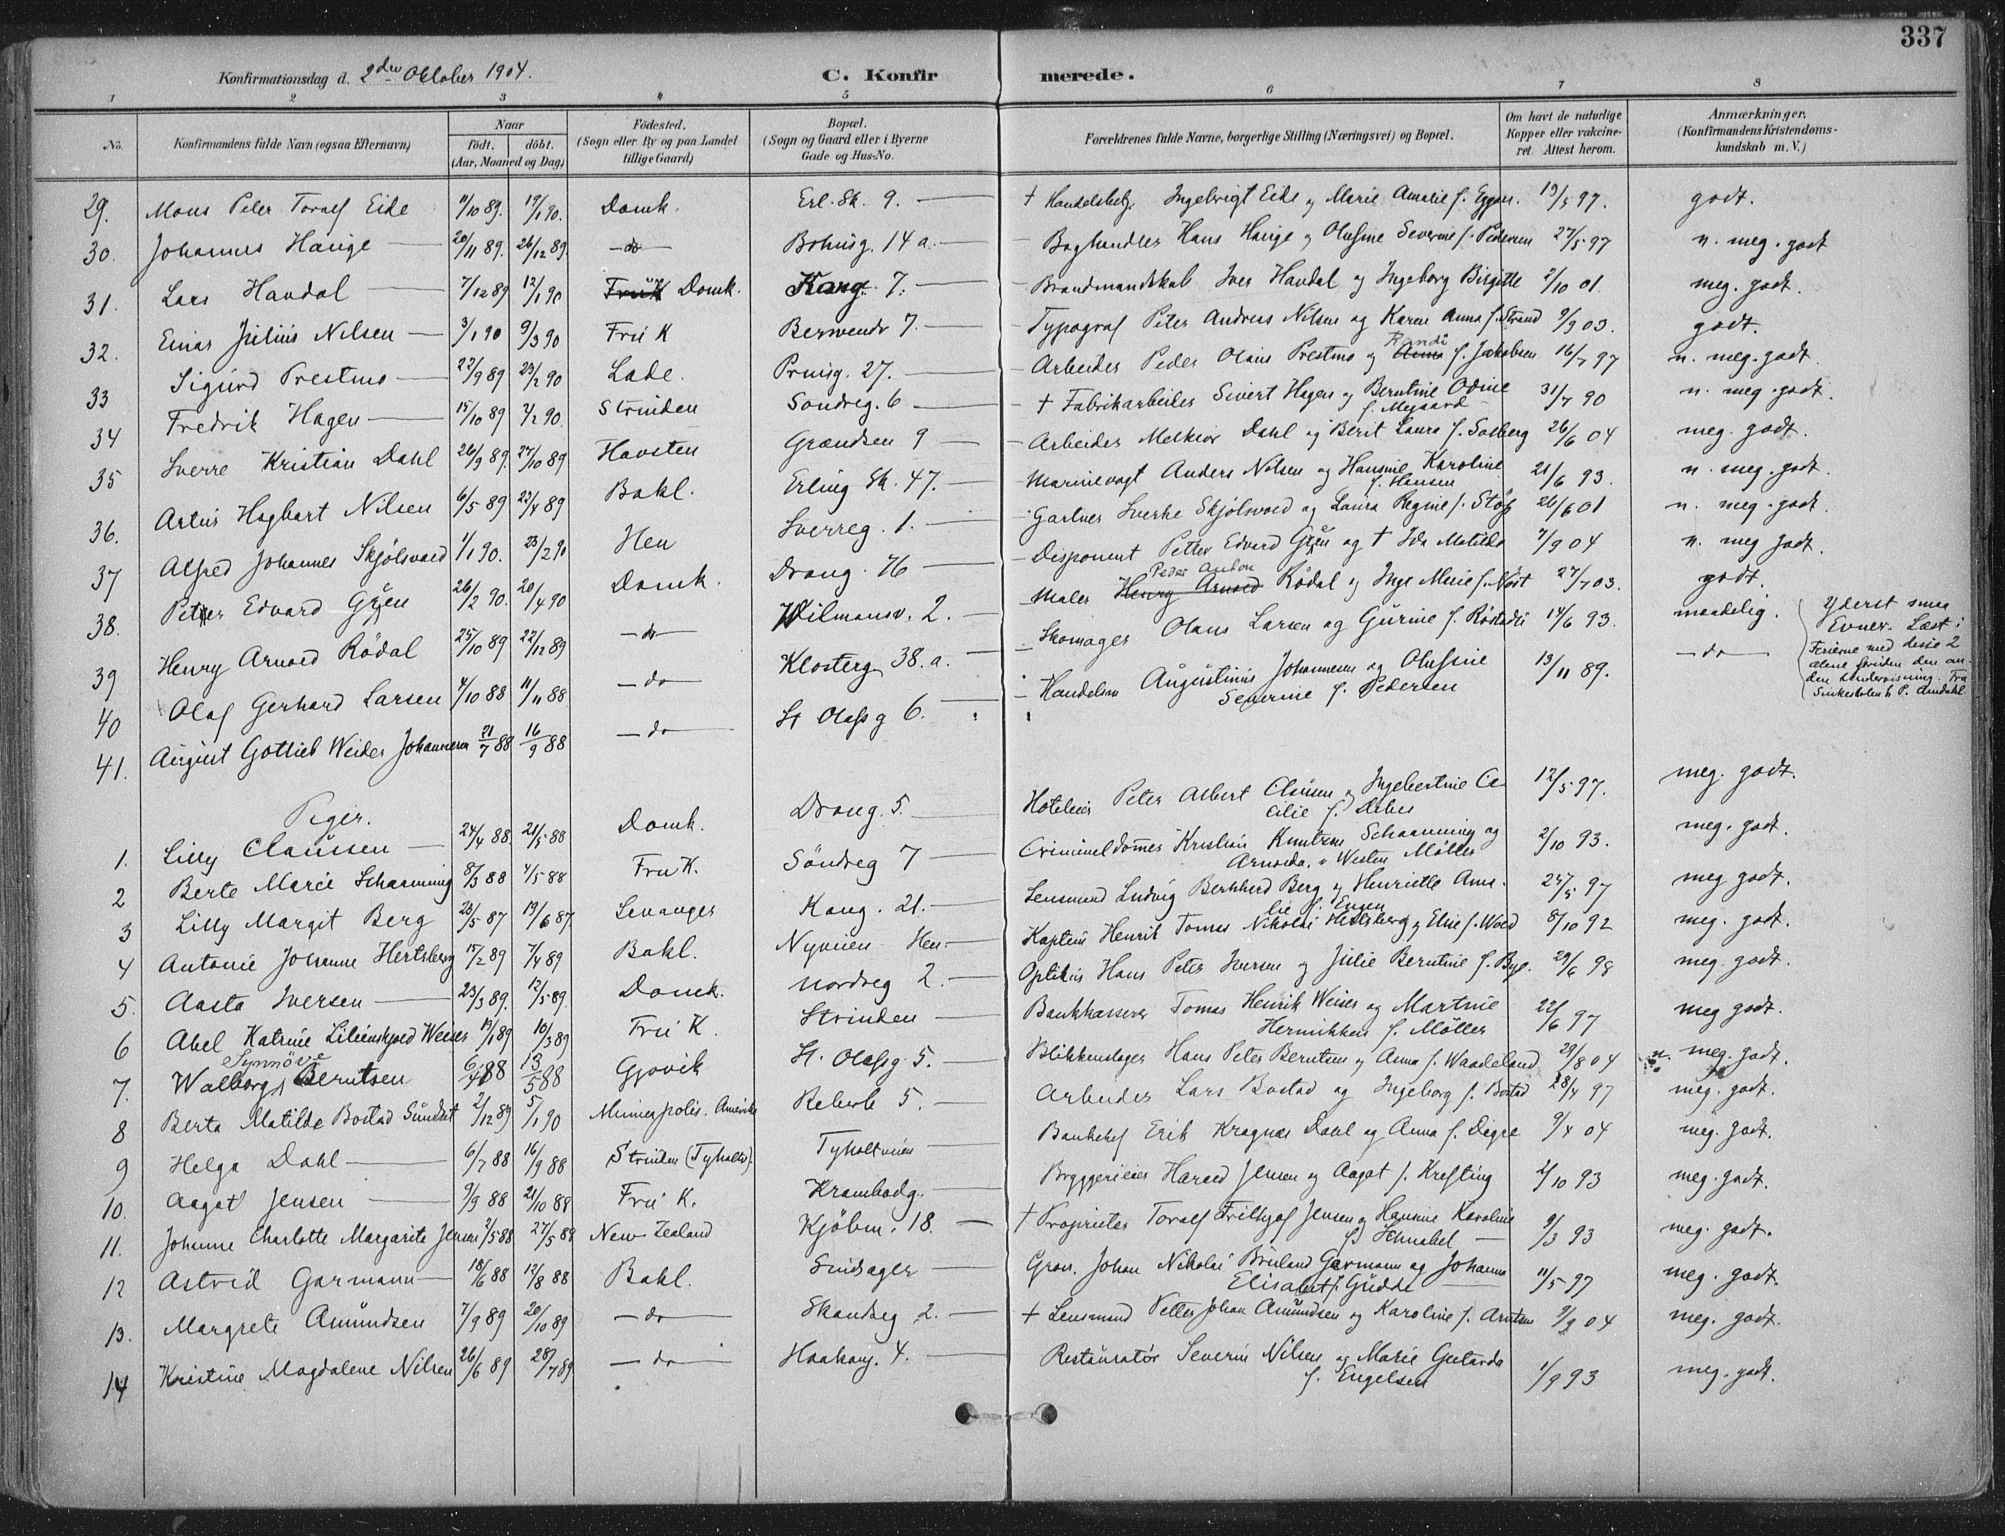 337
Konfirmationsdag d. 2den Oktober 1904. C. Konfirmerede.
1 2 3 4 5 6 7 8
No. Konfirmandens fulde Navn (ogsaa Efternavn) Naar Födt. döbt. (Aar, Maaned og Dag) Födested. (Sogn eller By og paa Landet tillige Gaard) Bopæl. (Sogn og Gaard eller i Byerne Gade og Hus-No. Forældrenes fulde Navne, borgerlige Stilling (Næringsvei) og Bopæl. Om havt de naturlige Kopper eller vakcineret. Attest herom. Anmærkninger, (Konfirmandens Kristendomskundskab m. V.)
29. Mons Peter Toralf Eide 11/10 89. 19/1 90. Domk. Erl. Sk. 9. † Handelsbetj. Ingebrigt Eide og Marie Amalie f. 19/5 97. godt.
30. Johannes Hauge 20/11 89. 26/12 89. do Bohusg. 14 a. Boghandler Hans Hauge og Olufine Severine f. Pedersen 27/5 97 n. meg. godt
31. Lars Havdal 7/12 89 12/1 90 Fru K Domk. Kong. 7. Brandmandskab Iver Havdal og Ingeborg Birgitte 2/10 01. meg. godt.
32. Einar Julius Nilsen 3/1 90 9/3 90 Frue K Berwendv 7. Typograf Peter Andreas Nilsen og Karen Anna f. Strand 9/9 03. godt.
33 Sigurd Prestmo 22/9 89 23/2 90 Lade. Prinsg. 27. Arbeider Peder Olaus Prestmo og Anna Randi f. Jakobsen 16/7 97 n. meg. godt.
34 Fredrik Hagen 15/10 89 7/2 90. Strinden Sondreg. 6 † Fabrikarbeider Sivert Hagen og Berntine Odine f. Megaard 31/7 90 n. meg. godt.
35 Sverre Kristian Dahl 26/9 89. 27/10 89 Havsten Grændsen 9 Arbeider Melkior Dahl og Berit Laura f. Solberg 26/6 04 meg. godt.
36. Artur Hagbart Nilsen 6/5 89 23/4 89 Bakl. Erling Sk. 47. Marinevagt Anders Nilsen og Hansine Karoline f. Hansen 21/6 93. n. meg. godt.
37 Alfred Johannes Skjölsvold 1/1 90. 23/2 90 Hen Sverreg. 1. Gartner Sverke Skjölsvold og Laura Regine f. Stöp 26/6 01 n. meg. godt.
38. Petter Edvard Gyen 26/2 90. 20/4 90 Domk. Drong. 76 Disponent Petter Edvard Gyen og † Ida Matilde 7/9 04 n. meg godt.
39 Henry Arnold Rödal 25/10 89 22/12 89 do Wilmansv. 2. Maler Henry Arnold Peder Anton Rödal og Inge Marie f. Nöst 27/7 03. godt.
40 Olaf Gerhard Larsen 4/10 88 11/11 88 do Klosterg 38. a. Skomager Olaus Larsen og Gurine f. Röstadli 14/6 93. maadelig. Yderst smaa Evner. Læst i Ferierne med disse 2 alene foruden den anden Undervisning. Fra
41. August Gottlieb Weider Johannesen 21/7 88 16/9 88 do St Olafsg 6. Handelsm Augustinus Johannesen og Olufine Severine f. Pedersen 13/11 89. do
Piger.
1. Lilly Claussen 24/4 88 21/5 88 Domk. Drong. 5. Hoteleier Peter Albert Clausen og Ingebertine Cecilie f. 12/5 97. meg. godt.
2 Berte Marie Schanning 8/3 88 4/5 88 Fru K. Söndreg 7 Crimineldomer Kristian Knutzen Schaanning og Arnolda v Westen Möller 2/10 93. meg. godt.
3 Lilly Margit Berg 23/5 87 19/6 87 Levanger Kong. 21. Lensmand Ludvig Bernherd Berg og Henriette Amalie f. Engen 24/5 97 meg godt.
4 Antonie Johanne Hertsberg 15/2 89 7/4 89 Bakl. Nyveien Hen. Kaptein Henrik Tomas Nikolai Hertsberg og Elise f. Wold 8/10 92 meg. godt.
5. Aasta Iversen 23/3 89. 12/5 89 Domk. Nordreg 2. Optikus Hans Peter Iversen og Julie Berntine f. Bye. 29/6 98 meg. godt.
6 Abel Katrine Lilienskjold Weiser 19/1 89 10/3 89 Frue K. Strinden Bankkasserer Tomas Henrik Weiser og Martine Hermikken f. Möller 22/6 97 meg godt.
7. Walborg Synnöve Berntsen 6/4 88 13/5 88 Gjovik St. Olafsg. 5. Blikkenslager Hans Peter Berntsen og Anna f. Waadeland 29/8 04 n. meg. godt.
8 Berta Matilde Bostad Sundset 2/12 89 5/1 90 Minneapolis. Amerika Reberb 5. Arbeider Lars Bostad og Ingeborg f. Bostad 28/4 97 meg. godt.
9 Helga Dahl 6/7 88 16/9 88 Strinden (Tyholtv). Tyholtveien Bankchef Erik Kragnæs Dahl og Anna f. Digre 9/4 04 meg. godt.
10. Aagot Jensen 9/9 88 21/10 88 Frue K. Krambodg. Bryggerieier Harald Jensen og Aagot f. Krefting 2/10 93 meg. godt.
11. Johanne Charlotte Margarita Jensen 2/5 88 27/5 88 New Zealand Kjöbm. 18. † Proprietær Toralf Frithjof Jensen og Hansine Karoline f. Schnabel 9/3 93 meg. godt.
12 Astrid Garmann 18/6 88 12/8 88 Bakl. Gros. Johan Nikolai Bruland Garmann og Johanna Elisabet f. Gudde 11/5 97 meg. godt.
13. Margrete Amundsen 7/9 89 20/10 89 do Skandseg 2. † Lensmand Petter Johan Amundsen og Karoline f. Arntsen 9/9 04 meg. godt.
14 Kristine Magdalene Nilsen 26/6 89 28/7 89 do Haakong. 4. Restauratör Severin Nilsen og Marie Gustava f. Engelsen 1/9 93 meg. godt.